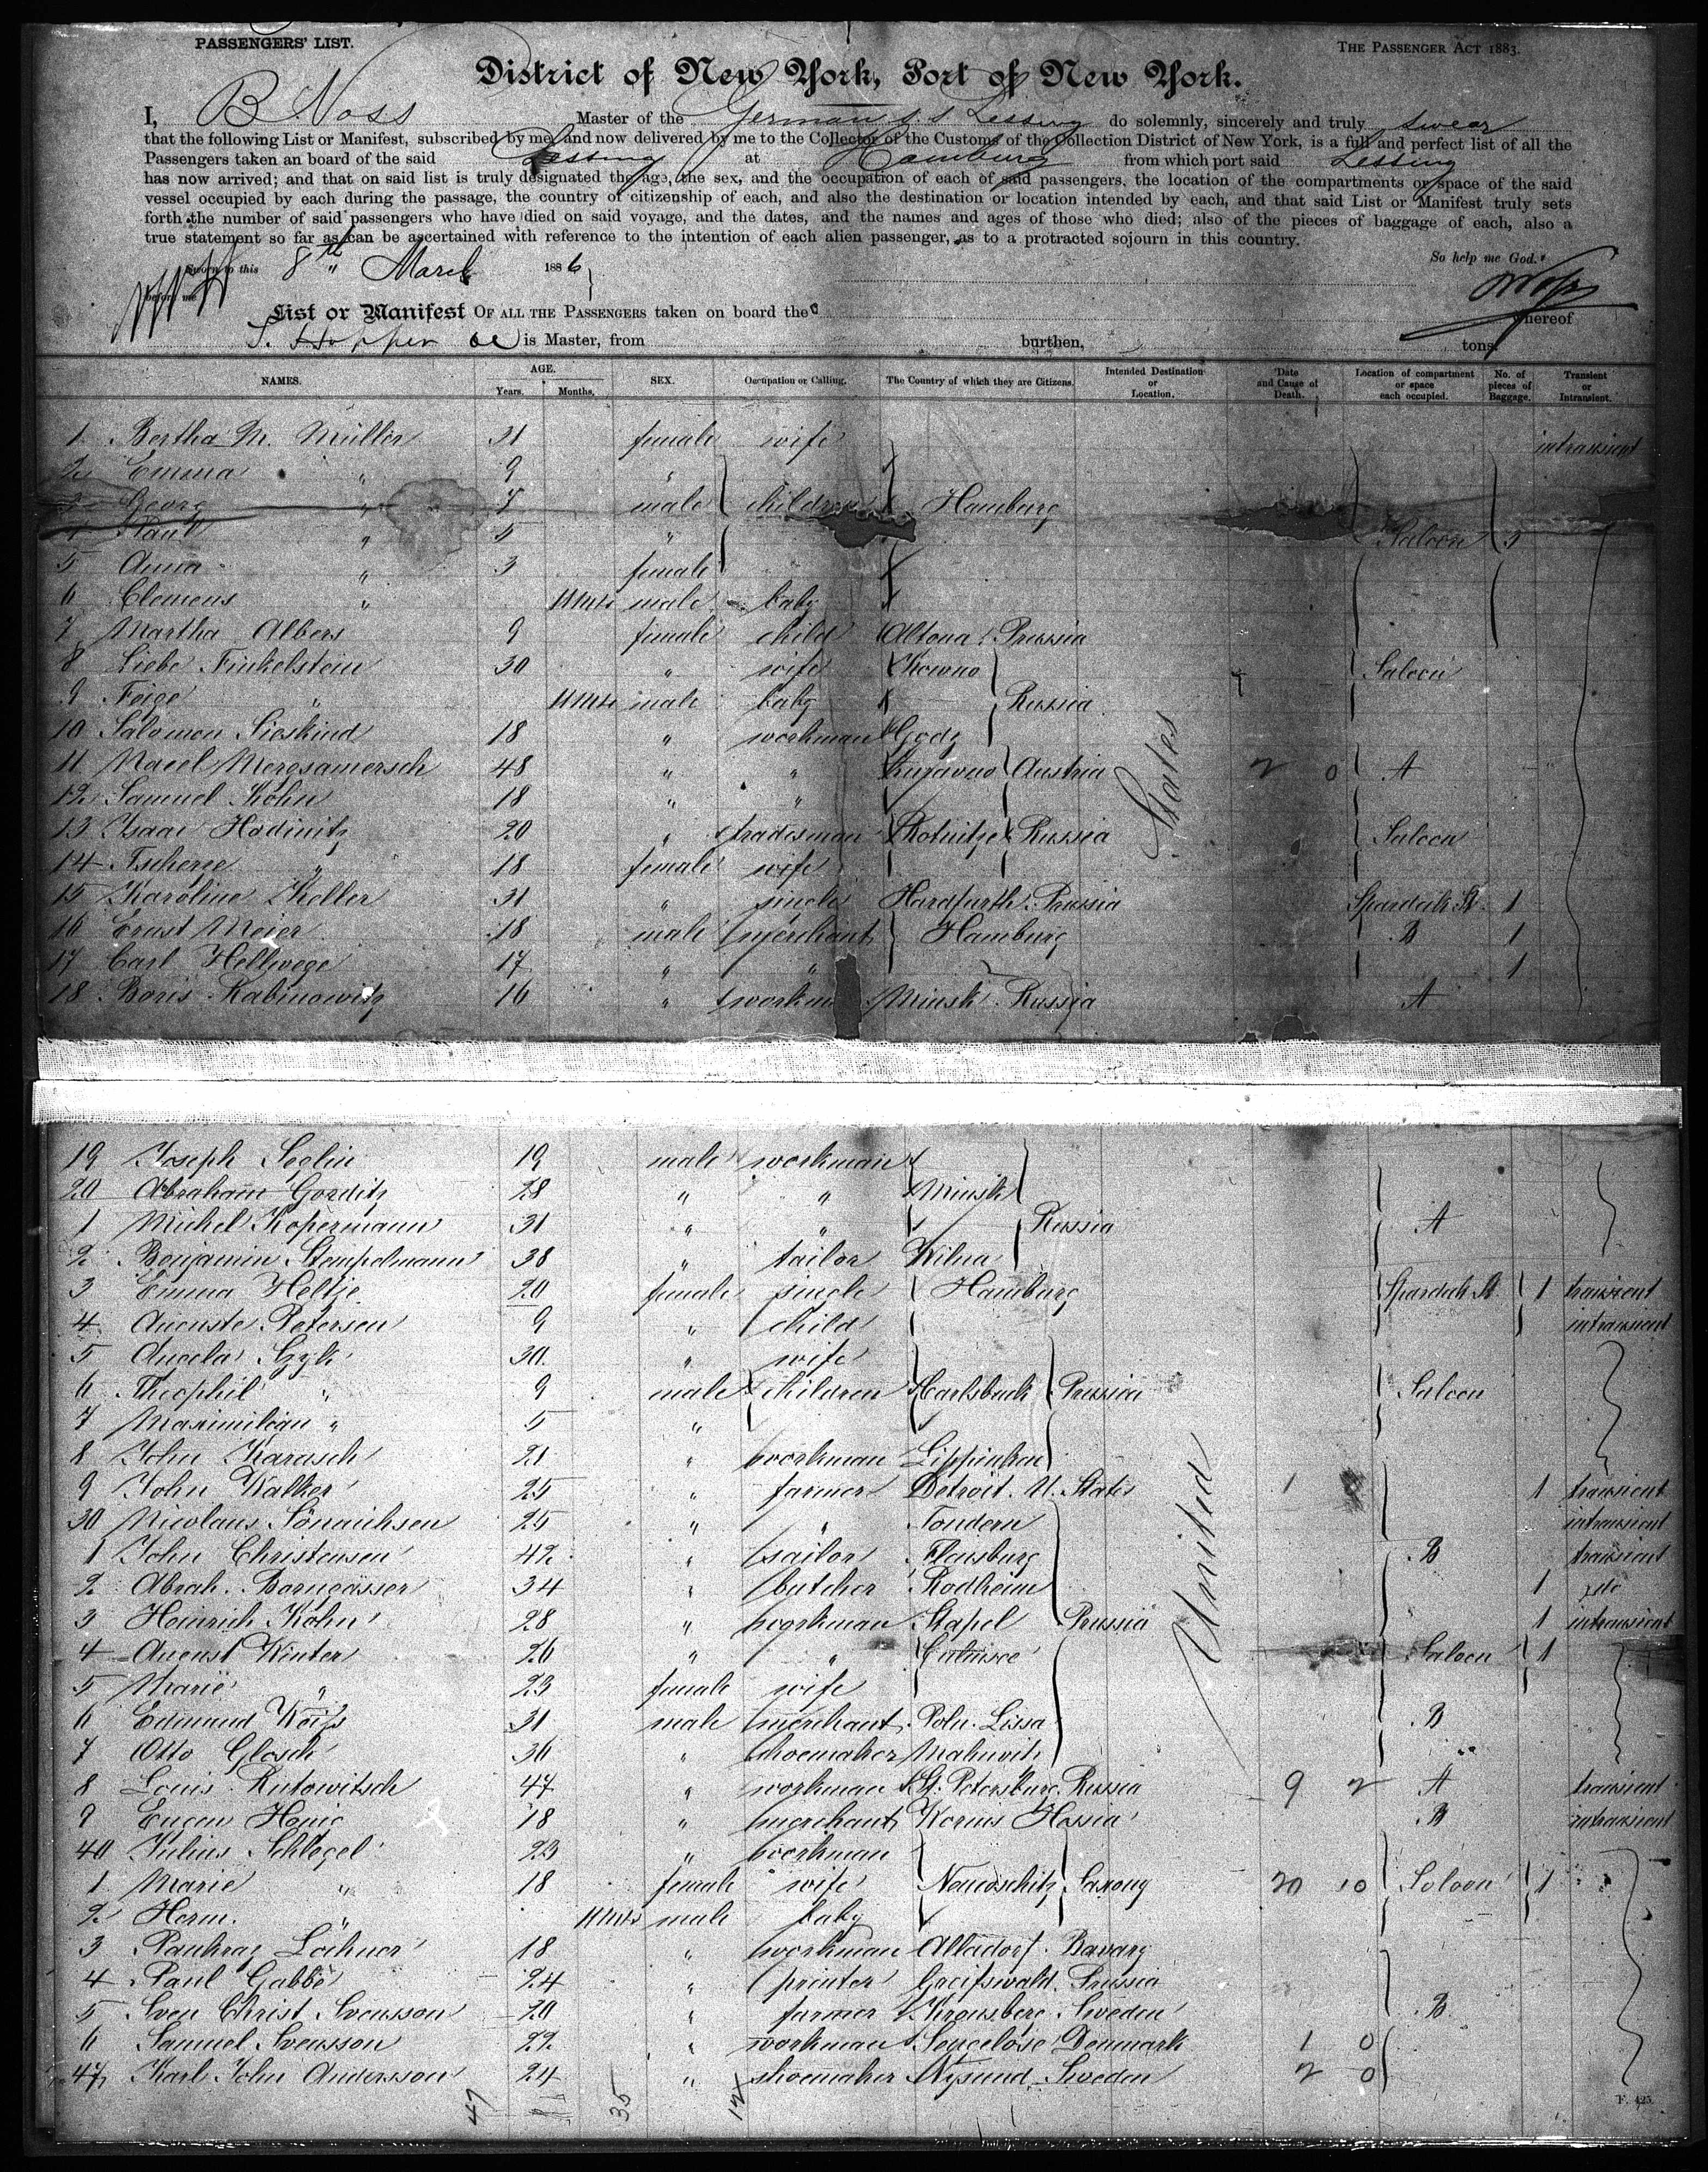 PASSENGERS' LIST.
THE PASSENGER ACT 1883.
District of New York, Port of New York.
I, B. Voss Master of the German s.s. Lessing do solemnly, sincerely and truly swear
that the following List or Manifest, subscribed by me, and now delivered by me to the Collector of the Customs of the Collection District of New York, is a full and perfect list of all the
Passengers taken an board of the said Lessing at Hamburg from which port said Lessing
has now arrived; and that on said list is truly designated the age, the sex, and the occupation of each of said passengers, the location of the compartments or space of the said
vessel occupied by each during the passage, the country of citizenship of each, and also the destination or location intended by each, and that said List or Manifest truly sets
forth the number of said passengers who have died on said voyage, and the dates, and the names and ages of those who died; also of the pieces of baggage of each, also a
true statement so far as can be ascertained with reference to the intention of each alien passenger, as to a protracted sojourn in this country.
Sworn to this 8th March 1886 So help me God.
before me Voss
List or Manifest OF ALL THE PASSENGERS taken on board the whereof
is Master, from burthen, tons.
NAMES. AGE. Years. Months. SEX. Occupation or Calling. The Country of which they are Citizens. Intended Destination or Location. Date and Cause of Death. Location of compartment or space each occupied. No. of pieces of Baggage. Transient or Intransient.
1 Bertha M. Müller 31 female wife intransient
2 Emma " 9 "
3 Georg " 7 male children Hamburg
4 Paul " 5 " Saloon 3
5 Anna " 3 female
6 Clemens " 11 Mts male baby
7 Martha Albers 9 female child Altona Prussia
8 Liebe Finkelstein 30 " wife Kowno Saloon
9 Feige " 11 Mts male baby Russia
10 Salomon Sieskind 18 " workman
11 48 " " Austria 2 0 A
12 Samuel Kohn 18 " "
13 Isaac 20 " tradesman Russia Saloon
14 " 18 female wife
15 Karoline Keller 31 " single Prussia Spardeck St. 1
16 Ernst Meier 18 male merchant Hamburg B 1
17 Carl Hellwege 17 " " 1
18 Boris Rabinowitz 16 " workman Minsk Russia A
States
19 Joseph Seglin 19 male workman
20 Abraham Gorditz 28 " " Minsk
1 Michel Kopermann 31 " " Russia A
2 Benjamin Stempelmann 38 " tailor Wilna
3 Emma Heltje 20 female single Hamburg Spardeck St. 1 transient
4 Auguste Petersen 9 " child intransient
5 Angela Szyk 30 " wife
6 Theophil " 9 male children Prussia Saloon
7 Maximilian " 5 "
8 John Karasch 21 " workman Lippinken
9 John Walker 25 " farmer Detroit U. States 1 1 transient
30 Nicolaus Sönnichsen 25 " " Tondern intransient
1 John Christensen 42 " sailor Flensburg B transient
2 Abrah. Borngässer 34 " butcher Rodheim 1 do
3 Heinrich Kohn 28 " workman Stapel Prussia 1 intransient
4 August Winter 26 " " Culmsee Saloon 1
5 Marie " 23 female wife
6 Edmund Weiss 31 male merchant Poln. Lissa B
7 Otto Glosch 36 " shoemaker
8 Louis Rutowitsch 47 " workman St. Petersburg Russia 9 2 A transient
9 Eugen Honig 18 " merchant Worms Hessia B intransient
40 Julius Schlegel 23 " workman
1 Marie " 18 female wife Saxony 20 10 Saloon 1
2 Herm. " 11 Mts male baby
3 Pankraz Lochner 18 " workman Alladorf Bavary
4 Paul Gabbe 24 " printer Greifswald Prussia
5 Sven Christ Svensson 20 " farmer Sweden B
6 Samuel Svensson 22 " workman Denmark 1 0
47 Karl John Andersson 24 " shoemaker Nysund Sweden 2 0
United
47 35 12
F. 425.